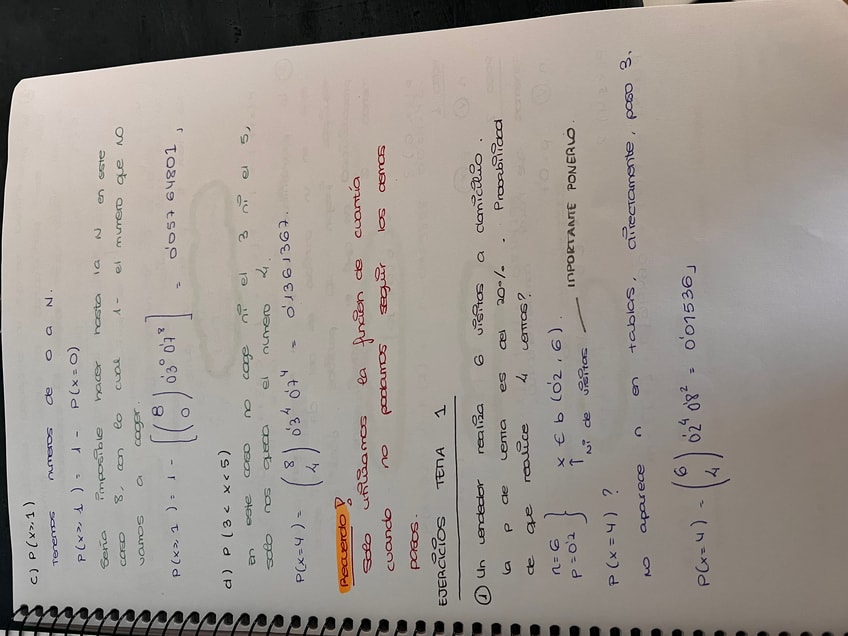 c) P(x≥1)
Tenemos numeros de 0 a N.
P(x≥1) = 1 - P(x=0)
Seria imposible hacer hasta la N en este
caso 8, con lo cual 1 - el numero que NO
vamos a coger.
P(x≥1) = 1 - [(8 0) 0'3⁰ 0'7⁸] = 0'05764801,
d) P(3<x<5)
En este caso no coge ni el 3 ni el 5,
solo nos queda el numero 4.
P(x=4) = (8 4) 0'3⁴ 0'7⁴ = 0'1361367.
Recuerdo!
Solo utilizamos la función de cuantía
cuando no podamos seguir los demas
pasos.
EJERCICIOS TEMA 1
① Un vendedor realiza 6 visitas a domicilio.
la P de venta es del 20%. Probabilidad
de que realice 4 ventas?
n=6
p=0'2 } x ∈ b (0'2, 6).
↑ Nº de visitas — IMPORTANTE PONERLO.
P(x=4)?
No aparece n en tablas, directamente, paso 3.
P(x=4) = (6 4) 0'2⁴ 0'8² = 0'01536,